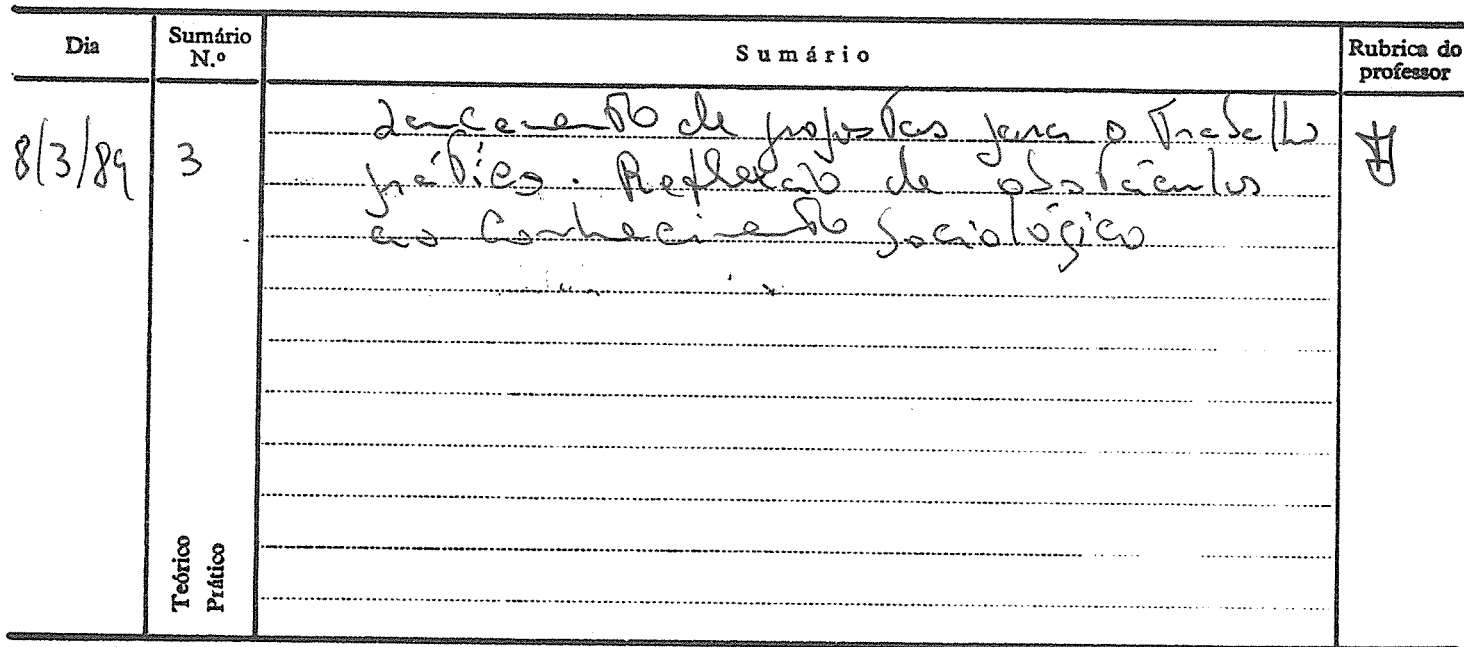 Dia
Sumário N.º
Sumário
Rubrica do professor
8/3/89
3
Lançamento de propostas para o Trabalho
prático. Reflexão de obstáculos
ao Conhecimento Sociológico
Teórico
Prático